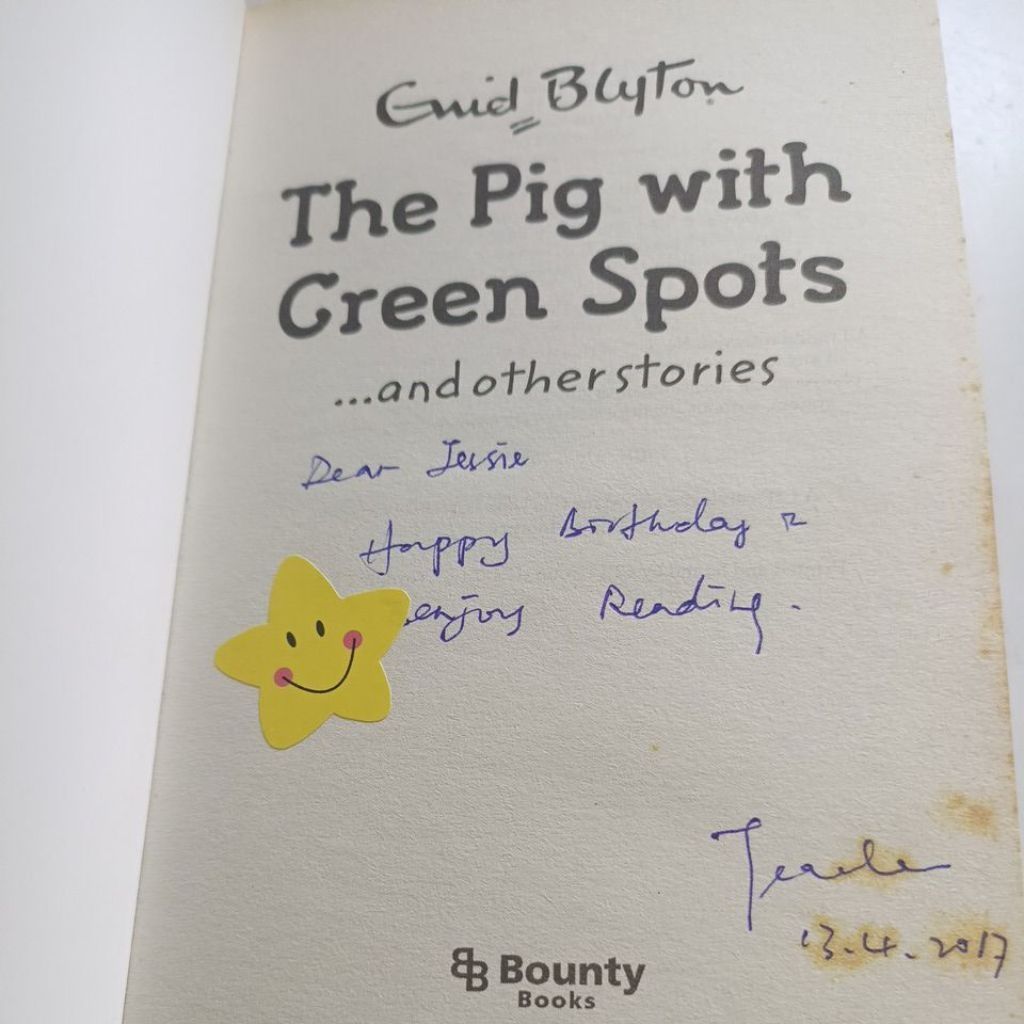 Enid Blyton
The Pig with
Green Spots
...and other stories
Dear Jessie
Happy Birthday &
enjoy Reading.
13.4.2017
Bounty
Books